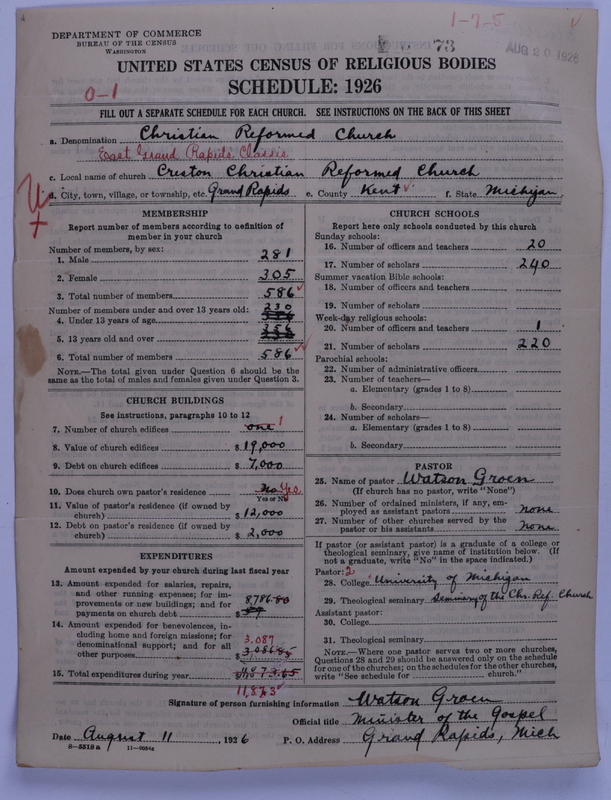 DEPARTMENT OF COMMERCE
BUREAU OF THE CENSUS
WASHINGTON
1-7-5
73
AUG 20 1926
UNITED STATES CENSUS OF RELIGIOUS BODIES
SCHEDULE: 1926
0-1
FILL OUT A SEPARATE SCHEDULE FOR EACH CHURCH. SEE INSTRUCTIONS ON THE BACK OF THIS SHEET
a. Denomination Christian Reformed Church
East Grand Rapids Classis
c. Local name of church Creston Christian Reformed Church
d. City, town, village, or township, etc. Grand Rapids e. County Kent f. State Michigan
MEMBERSHIP
Report number of members according to definition of member in your church
Number of members, by sex:
1. Male 281
2. Female 305
3. Total number of members 586
Number of members under and over 13 years old:
4. Under 13 years of age 230
5. 13 years old and over 356
6. Total number of members 586
NOTE.—The total given under Question 6 should be the same as the total of males and females given under Question 3.
CHURCH BUILDINGS
See instructions, paragraphs 10 to 12
7. Number of church edifices one 1
8. Value of church edifices $ 19,000
9. Debt on church edifices $ 7,000
10. Does church own pastor's residence No Yes
Yes or No
11. Value of pastor's residence (if owned by church) $ 12,000
12. Debt on pastor's residence (if owned by church) $ 2,000
EXPENDITURES
Amount expended by your church during last fiscal year
13. Amount expended for salaries, repairs, and other running expenses; for improvements or new buildings; and for payments on church debt $ 8,786.80
14. Amount expended for benevolences, including home and foreign missions; for denominational support; and for all other purposes 3.087
$ 3,086.85
15. Total expenditures during year $ 11,873.65
11,873
CHURCH SCHOOLS
Report here only schools conducted by this church
Sunday schools:
16. Number of officers and teachers 20
17. Number of scholars 240
Summer vacation Bible schools:
18. Number of officers and teachers
19. Number of scholars
Week-day religious schools:
20. Number of officers and teachers 1
21. Number of scholars 220
Parochial schools:
22. Number of administrative officers
23. Number of teachers—
a. Elementary (grades 1 to 8)
b. Secondary
24. Number of scholars—
a. Elementary (grades 1 to 8)
b. Secondary
PASTOR
25. Name of pastor Watson Groen
(If church has no pastor, write "None")
26. Number of ordained ministers, if any, employed as assistant pastors none
27. Number of other churches served by the pastor or his assistants none
If pastor (or assistant pastor) is a graduate of a college or theological seminary, give name of institution below. (If not a graduate, write "No" in the space indicated.)
Pastor: 2
28. College University of Michigan
29. Theological seminary Seminary of the Chr. Ref. Church
Assistant pastor:
30. College
31. Theological seminary
NOTE.—Where one pastor serves two or more churches, Questions 28 and 29 should be answered only on the schedule for one of the churches; on the schedules for the other churches, write "See schedule for church."
Signature of person furnishing information Watson Groen
Official title Minister of the Gospel
Date August 11, 1926 P. O. Address Grand Rapids, Mich
8-5518a 11-9054a